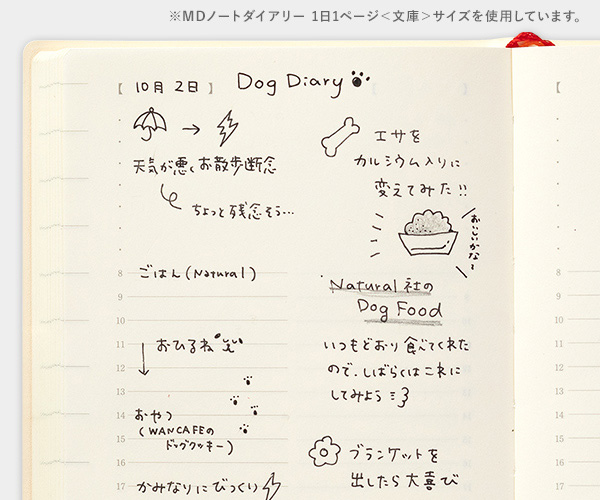 ※MDノートダイアリー 1日1ページ＜文庫＞サイズを使用しています。
【 10月 2日 】 Dog Diary
天気が悪くお散歩断念
ちょっと残念そう…
8 ごはん(Natural)
9
10
11 おひるね
12
13
14 おやつ
(WANCAFEの
15 ドッグクッキー)
16
17 かみなりにびっくり
エサを
カルシウム入りに
変えてみた!!
おいしいかな〜
Natural 社の
Dog Food
いつもどおり食べてくれた
ので、しばらくはこれに
してみよう
ブランケットを
出したら大喜び
8
9
10
11
12
13
14
15
16
17